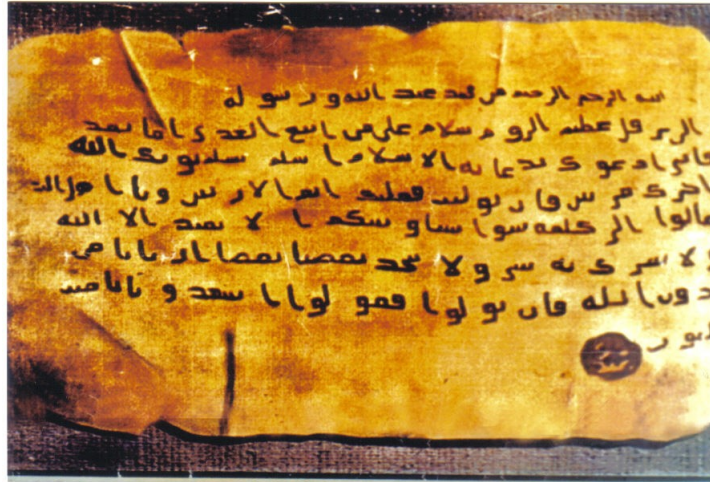 بسم الله الرحمن الرحيم من محمد عبد الله و رسو له
الى هرقل عظيم الروم سلام على من اتبع الهدى اما بعد
فانى ادعوك بدعاية الاسلام اسلم تسلم يوتك الله
اجرك مرتين فان توليت فعليك اثم الاريسين ويا اهل الكتب
تعالوا الى كلمة سوا بيننا وبينكم ا لا نعبد الا الله
و لا نشرك به شيا ولا يتخذ بعضنا بعضا اربابا من
دون الله فان تو لوا فقو لوا اشهدوا بانا مسل
مون